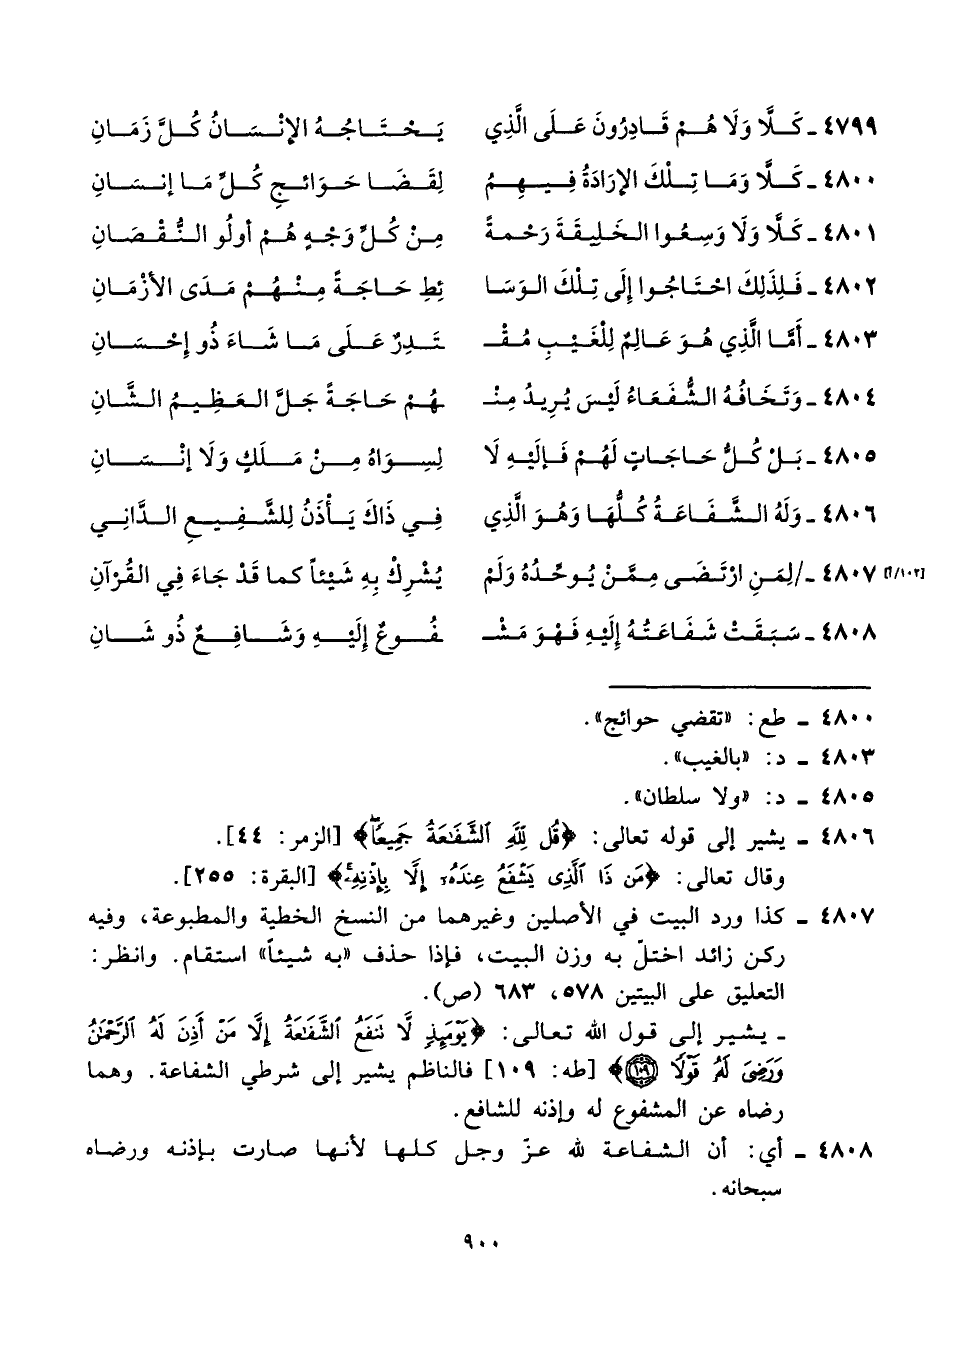 ٤٧٩٩ ـ كَلَّا وَلَا هُمْ قَادِرُونَ عَلَى الَّذِي يَحْتَاجُهُ الإنْسَانُ كُلَّ زَمَانِ
٤٨٠٠ ـ كَلَّا وَمَا تِلْكَ الإرَادَةُ فِيهِمُ لِقَضَا حَوَائجِ كُلِّ مَا إنسَانِ
٤٨٠١ ـ كَلَّا وَلَا وَسِعُوا الخَلِيقَةَ رَحْمةً مِنْ كُلِّ وَجْهٍ هُمْ أولُو النُّقْصَانِ
٤٨٠٢ ـ فَلِذَلِكَ احْتَاجُوا إلَى تِلْكَ الوَسَا ئِطِ حَاجَةً مِنْهُمْ مَدَى الأزْمَانِ
٤٨٠٣ ـ أمَّا الَّذِي هُوَ عَالِمٌ لِلْغَيْبِ مُقْـ ـتَدِرٌ عَلَى مَا شَاءَ ذُو إحْسَانِ
٤٨٠٤ ـ وَتَخَافُهُ الشُّفَعَاءُ لَيْسَ يُرِيدُ مِنْـ ـهُمْ حَاجَةً جَلَّ العَظِيمُ الشَّانِ
٤٨٠٥ ـ بَلْ كُلُّ حَاجَاتٍ لَهُمْ فَإلَيْهِ لَا لِسِوَاهُ مِنْ مَلَكٍ وَلَا إنْسَانِ
٤٨٠٦ ـ وَلَهُ الشَّفَاعَةُ كُلُّهَا وَهُوَ الَّذِي فِي ذَاكَ يَأْذَنُ لِلشَّفِيعِ الدَّانِي
[١٠٢/أ] ٤٨٠٧ ـ /لِمَنِ ارْتَضَى مِمَّنْ يُوحِّدُهُ وَلَمْ يُشْرِكْ بِهِ شَيْئاً كما قَدْ جَاءَ فِي القُرْآنِ
٤٨٠٨ ـ سَبَقَتْ شَفَاعَتُهُ إلَيْهِ فَهْوَ مَشْـ ـفُوعٌ إلَيْهِ وَشَافِعٌ ذُو شَانِ
٤٨٠٠ ـ طع: «تقضي حوائج».
٤٨٠٣ ـ د: «بالغيب».
٤٨٠٥ ـ د: «ولا سلطان».
٤٨٠٦ ـ يشير إلى قوله تعالى: ﴿قُل لِّلَّهِ ٱلشَّفَٰعَةُ جَمِيعٗا﴾ [الزمر: ٤٤].
وقال تعالى: ﴿مَن ذَا ٱلَّذِي يَشۡفَعُ عِندَهُۥٓ إِلَّا بِإِذۡنِهِۦ﴾ [البقرة: ٢٥٥].
٤٨٠٧ ـ كذا ورد البيت في الأصلين وغيرهما من النسخ الخطية والمطبوعة، وفيه
ركن زائد اختلّ به وزن البيت، فإذا حذف «به شيئاً» استقام. وانظر:
التعليق على البيتين ٥٧٨، ٦٨٣ (ص).
ـ يشير إلى قول الله تعالى: ﴿يَوۡمَئِذٖ لَّا تَنفَعُ ٱلشَّفَٰعَةُ إِلَّا مَنۡ أَذِنَ لَهُ ٱلرَّحۡمَٰنُ
وَرَضِيَ لَهُۥ قَوۡلٗا ١٠٩﴾ [طه: ١٠٩] فالناظم يشير إلى شرطي الشفاعة. وهما
رضاه عن المشفوع له وإذنه للشافع.
٤٨٠٨ ـ أي: أن الشفاعة لله عزّ وجل كلها لأنها صارت بإذنه ورضاه
سبحانه.
٩٠٠